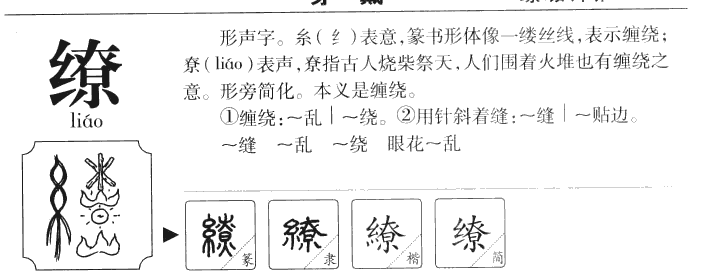 形声字。糸(纟)表意,篆书形体像一缕丝线,表示缠绕;
尞(liáo)表声,尞指古人烧柴祭天,人们围着火堆也有缠绕之
意。形旁简化。本义是缠绕。
①缠绕:～乱|～绕。②用针斜着缝:～缝|～贴边。
～缝 ～乱 ～绕 眼花～乱
缭
liáo
繚 篆
繚 隶
繚 楷
缭 简